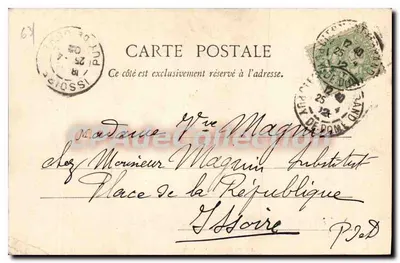 63)
CARTE POSTALE
Ce côté est exclusivement réservé à l'adresse.
ISSOIRE
PUY-DE-DOME
Madame Vve Magnin
chez Monsieur Magnin Substitut
Place de la République
Issoire
P. de D